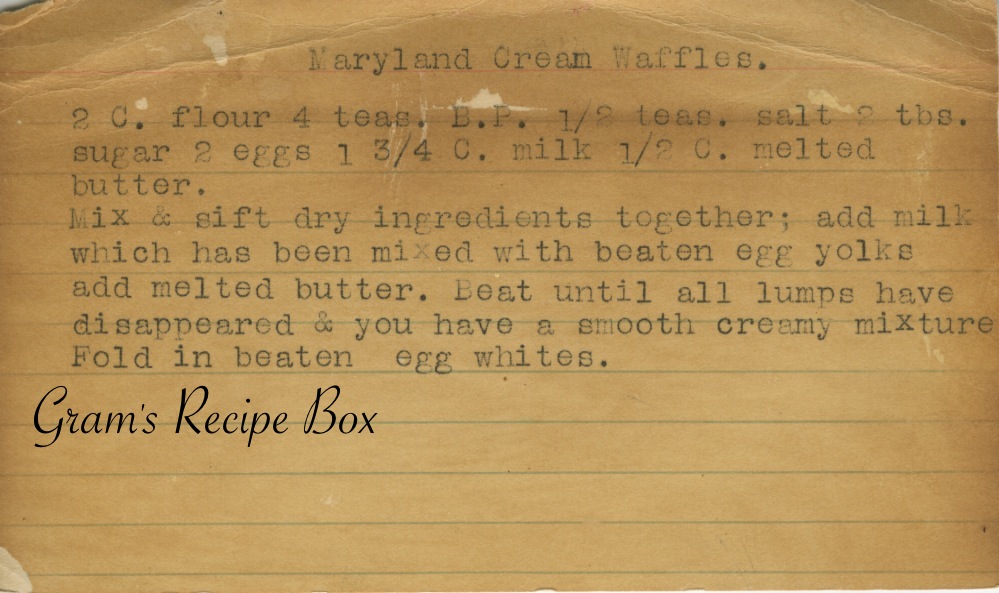 Maryland Cream Waffles.
2 C. flour 4 teas. B.P. 1/2 teas. salt 2 tbs.
sugar 2 eggs 1 3/4 C. milk 1/2 C. melted
butter.
Mix & sift dry ingredients together; add milk
which has been mixed with beaten egg yolks
add melted butter. Beat until all lumps have
disappeared & you have a smooth creamy mixture
Fold in beaten egg whites.
Gram's Recipe Box